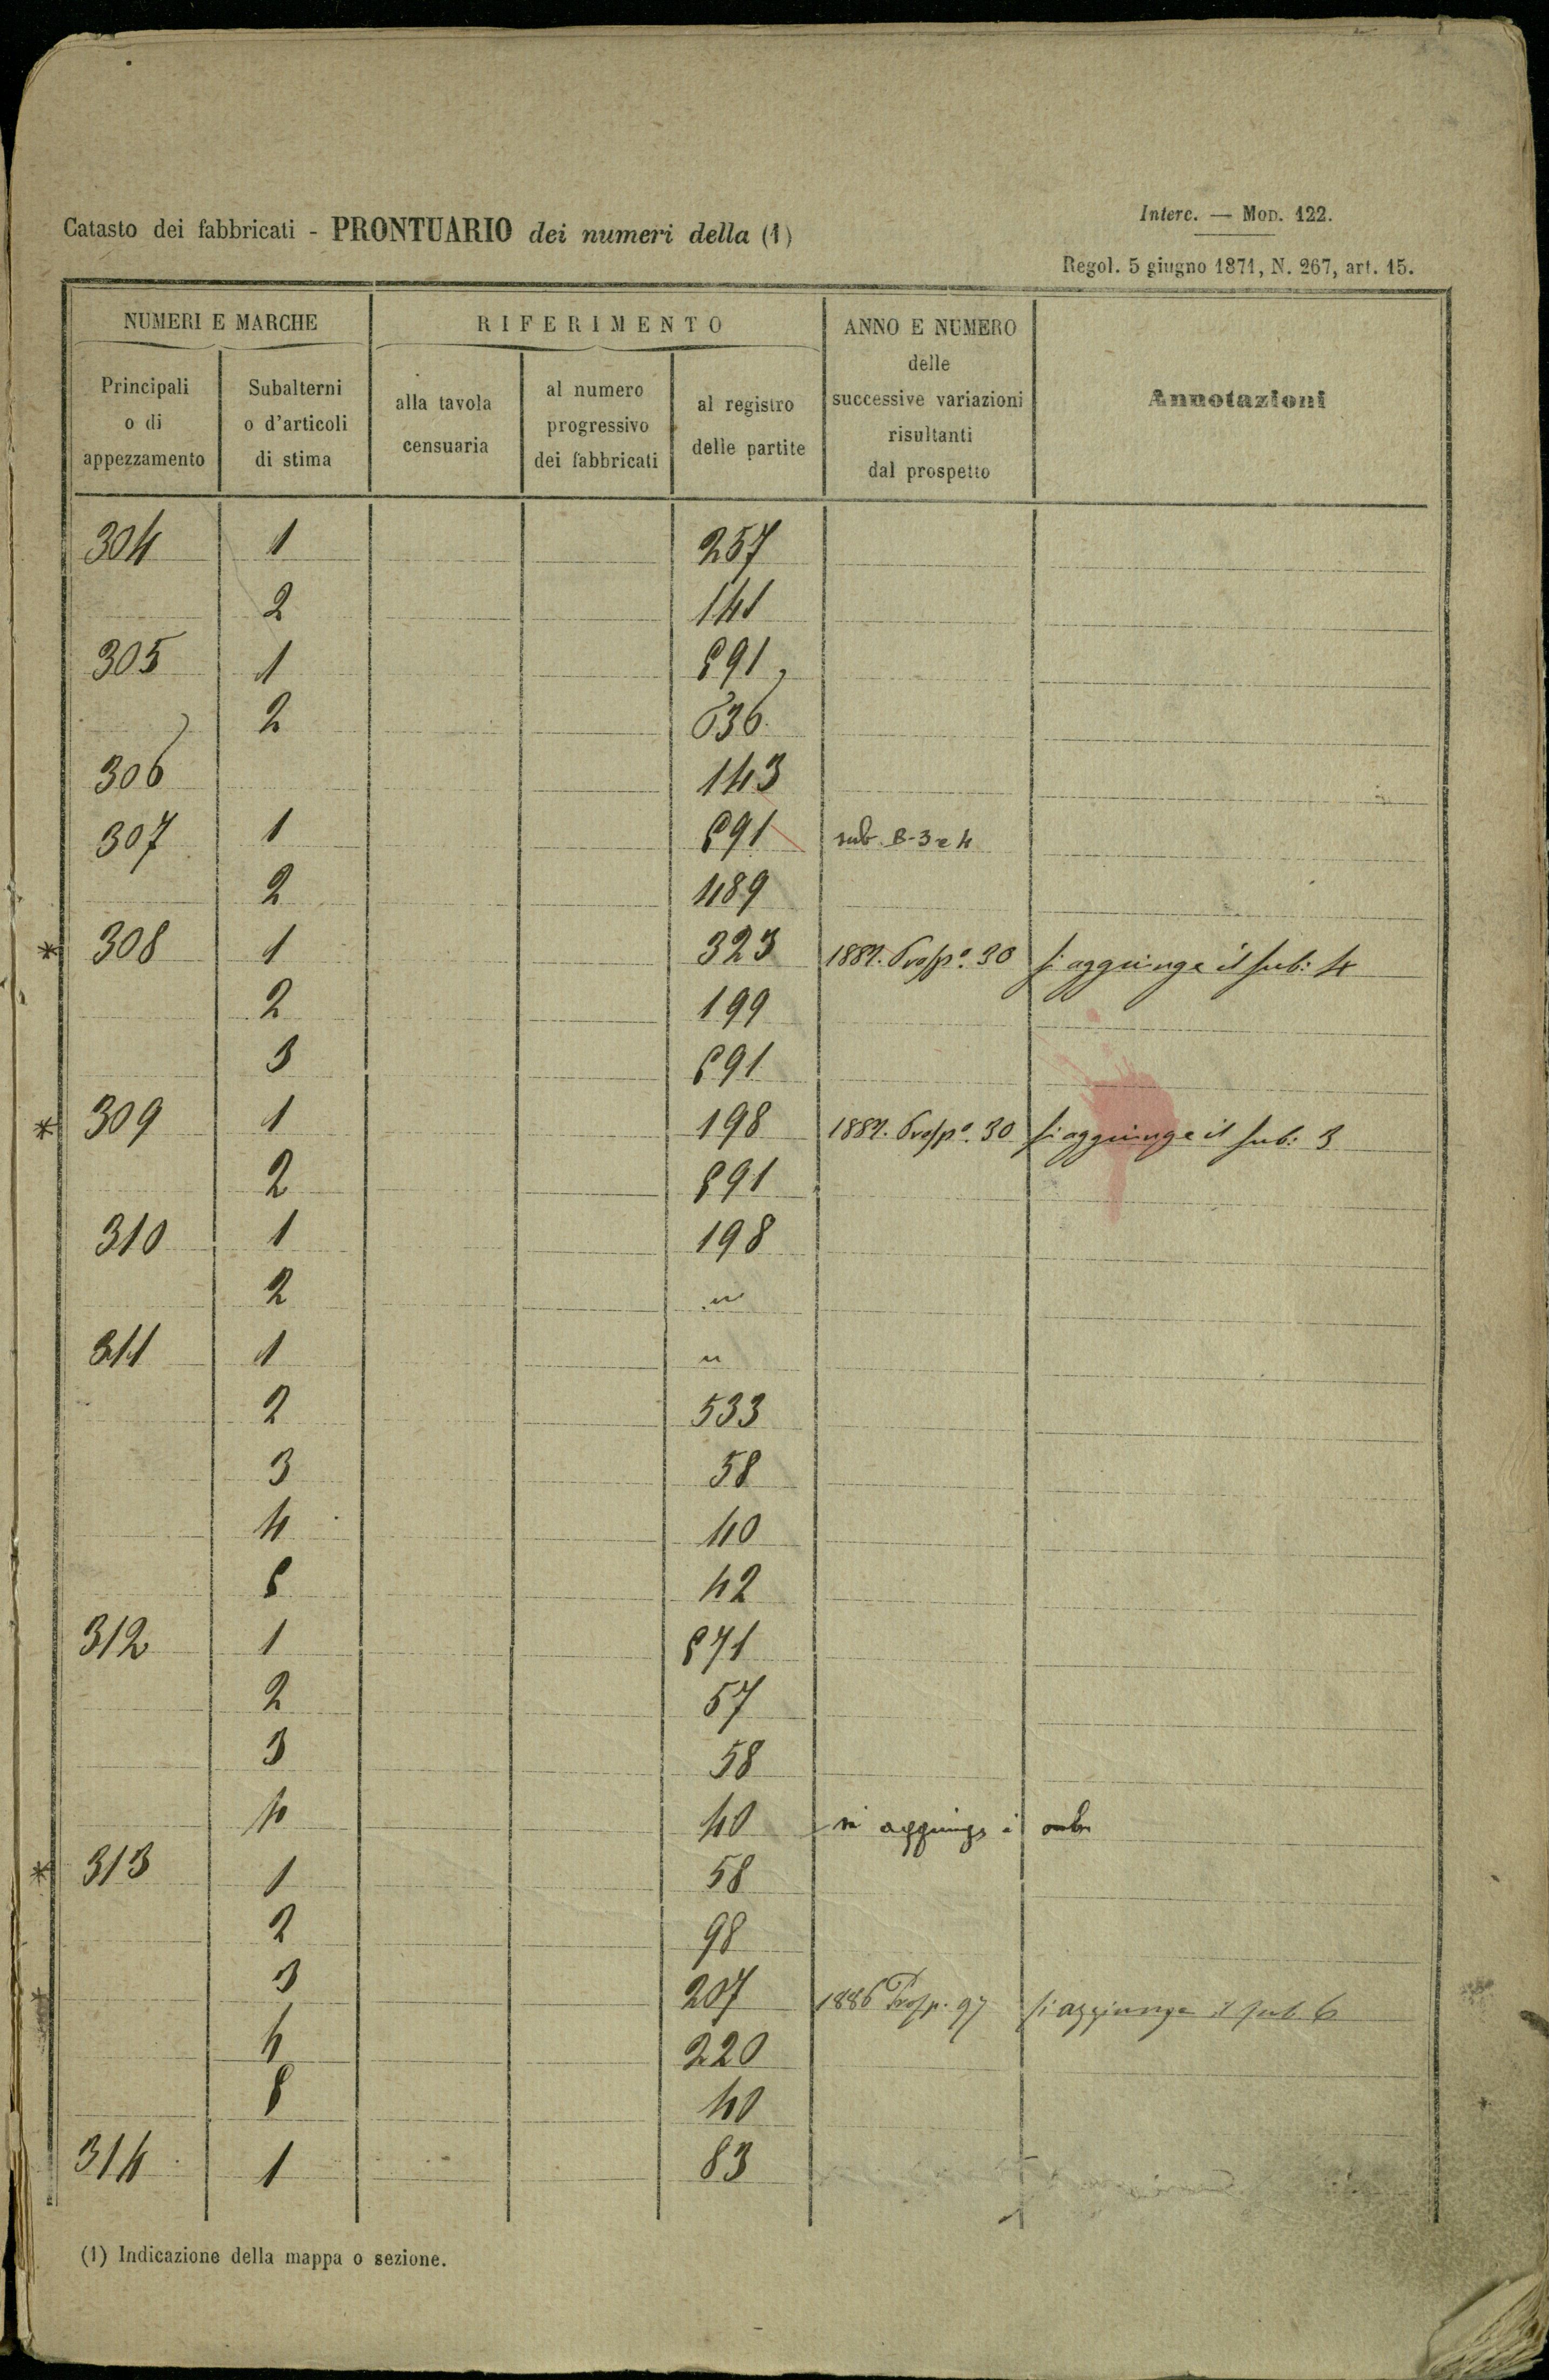 Interc. — Mod. 122.
Catasto dei fabbricati - PRONTUARIO dei numeri della (1)
Regol. 5 giugno 1871, N. 267, art. 15.
NUMERI E MARCHE RIFERIMENTO ANNO E NUMERO delle successive variazioni risultanti dal prospetto Annotazioni
Principali o di appezzamento Subalterni o d'articoli di stima alla tavola censuaria al numero progressivo dei fabbricati al registro delle partite
304 1 257
2 141
305 1 591
2 536
306 143
307 1 591 sub. B-3 e 4
2 489
* 308 1 323 1887. Prosp.o 30 si aggiunge il sub: 4
2 199
3 591
* 309 1 198 1887. Prosp.o 30 si aggiunge il sub: 3
2 591
310 1 198
2 "
311 1 "
2 533
3 58
4 40
5 42
312 1 571
2 57
3 58
4 40 si aggiunge i
* 313 1 58
2 98
3 207 1886 Prosp. 97 si aggiunge il sub 6
4 220
5 40
314 1 83
(1) Indicazione della mappa o sezione.